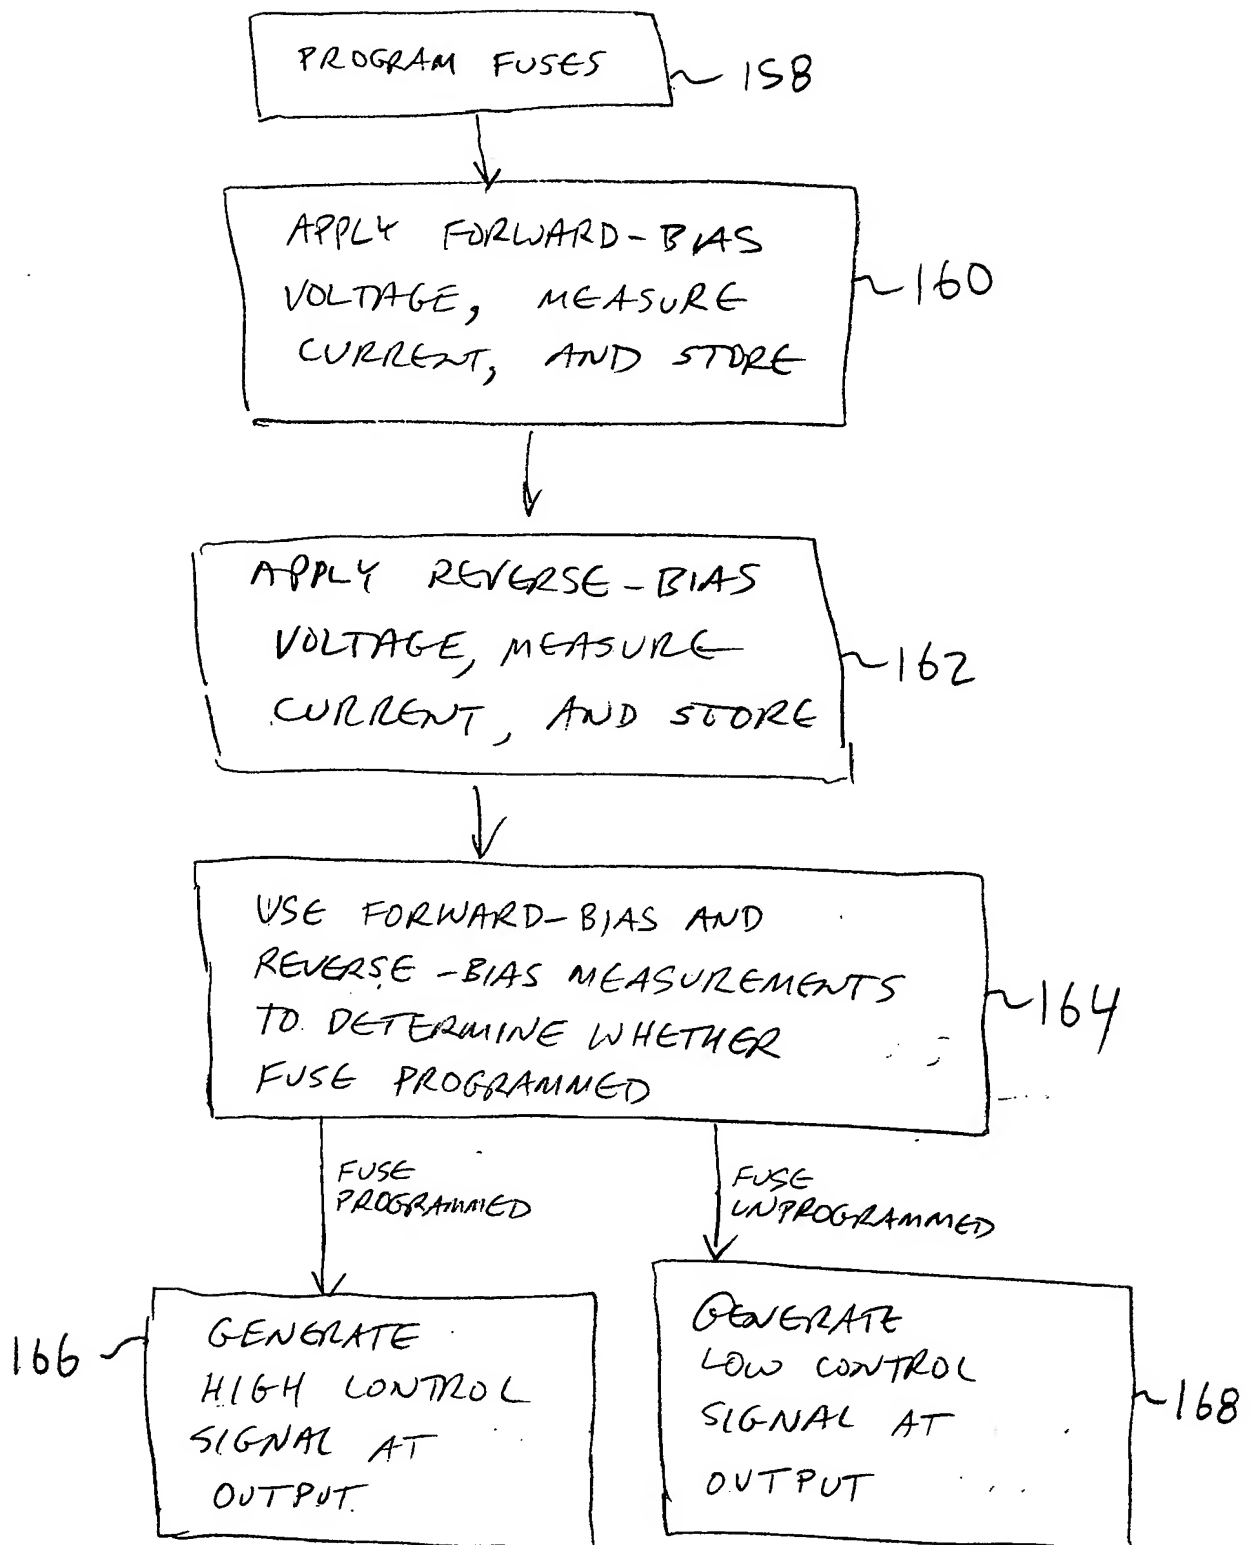 PROGRAM FUSES
158
APPLY FORWARD-BIAS
VOLTAGE, MEASURE
CURRENT, AND STORE
160
APPLY REVERSE-BIAS
VOLTAGE, MEASURE
CURRENT, AND STORE
162
USE FORWARD-BIAS AND
REVERSE-BIAS MEASUREMENTS
TO DETERMINE WHETHER
FUSE PROGRAMMED
164
FUSE
PROGRAMMED
FUSE
UNPROGRAMMED
166
GENERATE
HIGH CONTROL
SIGNAL AT
OUTPUT
GENERATE
LOW CONTROL
SIGNAL AT
OUTPUT
168